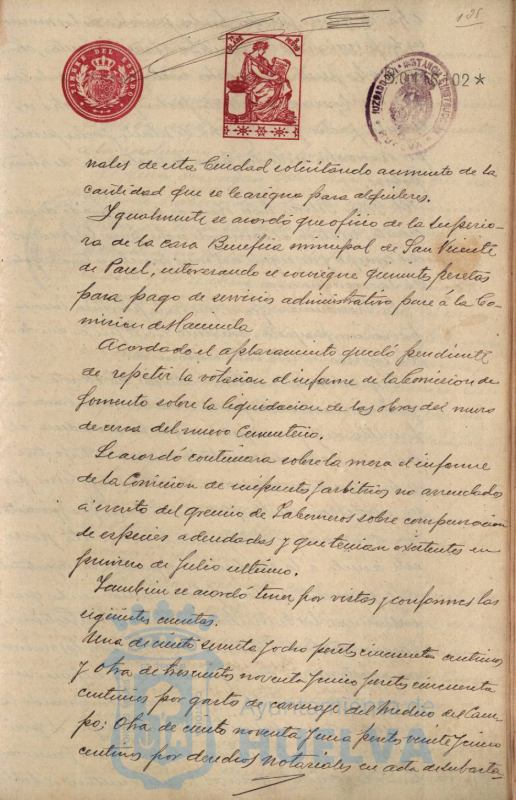 125
TIMBRE DEL ESTADO
0.015.102 *
JUZGADO DE 1ª INSTANCIA E INSTRUCCION
HUELVA
nales de esta Ciudad solicitando aumento de la
cantidad que se le asigna para alquileres.
Igualmente se acordó que oficio de la Superio-
ra de la casa Benefica municipal de San Vicente
de Paul, interesando se consigne quinientas pesetas
para pago de servicios administrativo pase á la Co-
mision de Hacienda
Acordado el aplazamiento quedó pendiente
de repetir la votacion el informe de la Comision de
fomento sobre la liquidacion de las obras del muro
de cerca del nuevo Cementerio.
Se acordó continuara sobre la mesa el informe
de la Comision de impuestos y arbitrios no arrendados
á escrito del gremio de Taberneros sobre compensacion
de especies adeudadas y que tenian existentes en
primero de Julio ultimo.
Tambien se acordó tener por vistas y conformes las
siguientes cuentas.
Una de ciento sesenta y ocho pesetas cincuenta centimos
y otra de trescientos noventa y cinco pesetas cincuenta
centimos por gasto de carruaje del Medico del Cam-
po; Otra de ciento noventa y una pesetas veinte y cinco
centimos por derechos notariales en acta de subasta
Ayuntamiento de
HUELVA